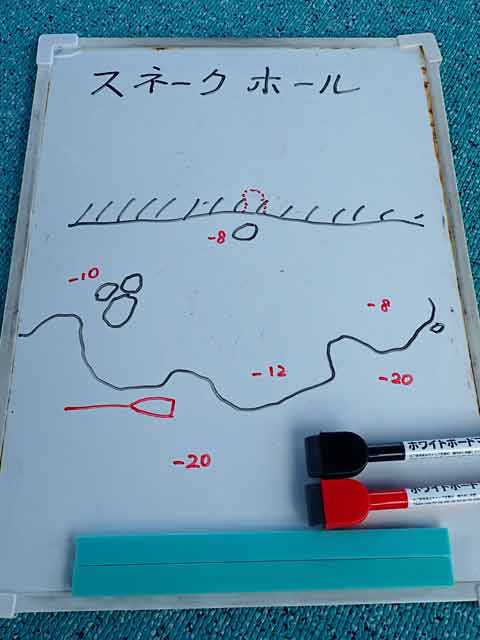 スネークホール
-8
-10
-8
-12
-20
-20
ホワイトボードマ
ホワイトボードマ